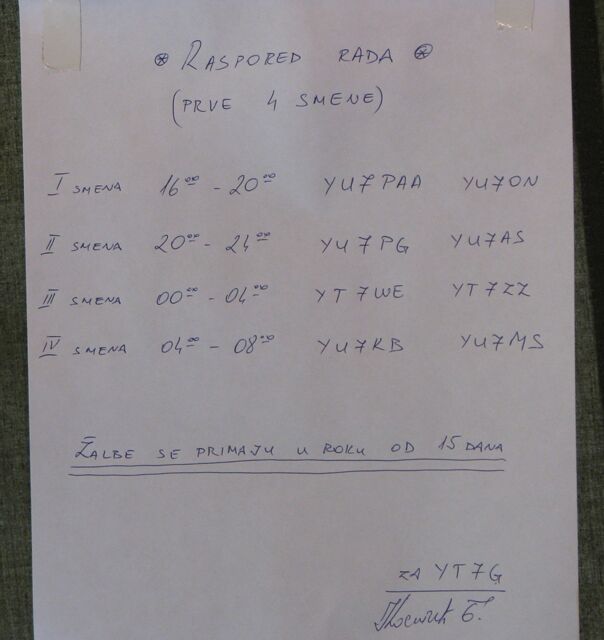 RASPORED RADA
(PRVE 4 SMENE)
I SMENA 16⁰⁰ - 20⁰⁰ YU7PAA YU7ON
II SMENA 20⁰⁰ - 24⁰⁰ YU7PG YU7AS
III SMENA 00⁰⁰ - 04⁰⁰ YT7WE YT7ZZ
IV SMENA 04⁰⁰ - 08⁰⁰ YU7RB YU7MS
ŽALBE SE PRIMAJU U ROKU OD 15 DANA
ZA YT7G